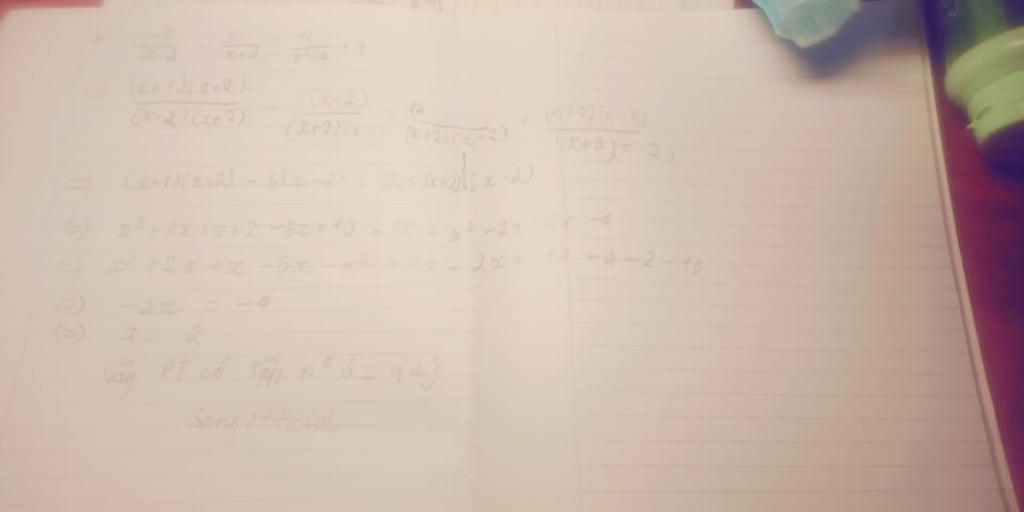 b x+1/x-2 - 5/x+2 = 12/x²-4 + 1
<=> (x+1)(x+2)/(x-2)(x+2) - 5(x-2)/(x+2)(x-2) = 12/(x+2)(x-2) + (x+2)(x-2)/(x+2)(x-2)
=> (x+1)(x+2) - 5(x-2) = 12 + (x+2)(x-2)
(=) x² + 2x + x + 2 - 5x + 10 = 12 + x² - 2x + 2x - 4
(=) x² + 2x + x - 5x - x² + 2x - 2x = 12 - 4 - 2 - 10
(=) -2x = -4
(=) x = 2
Vậy PT có tập n⁰ S = {2}